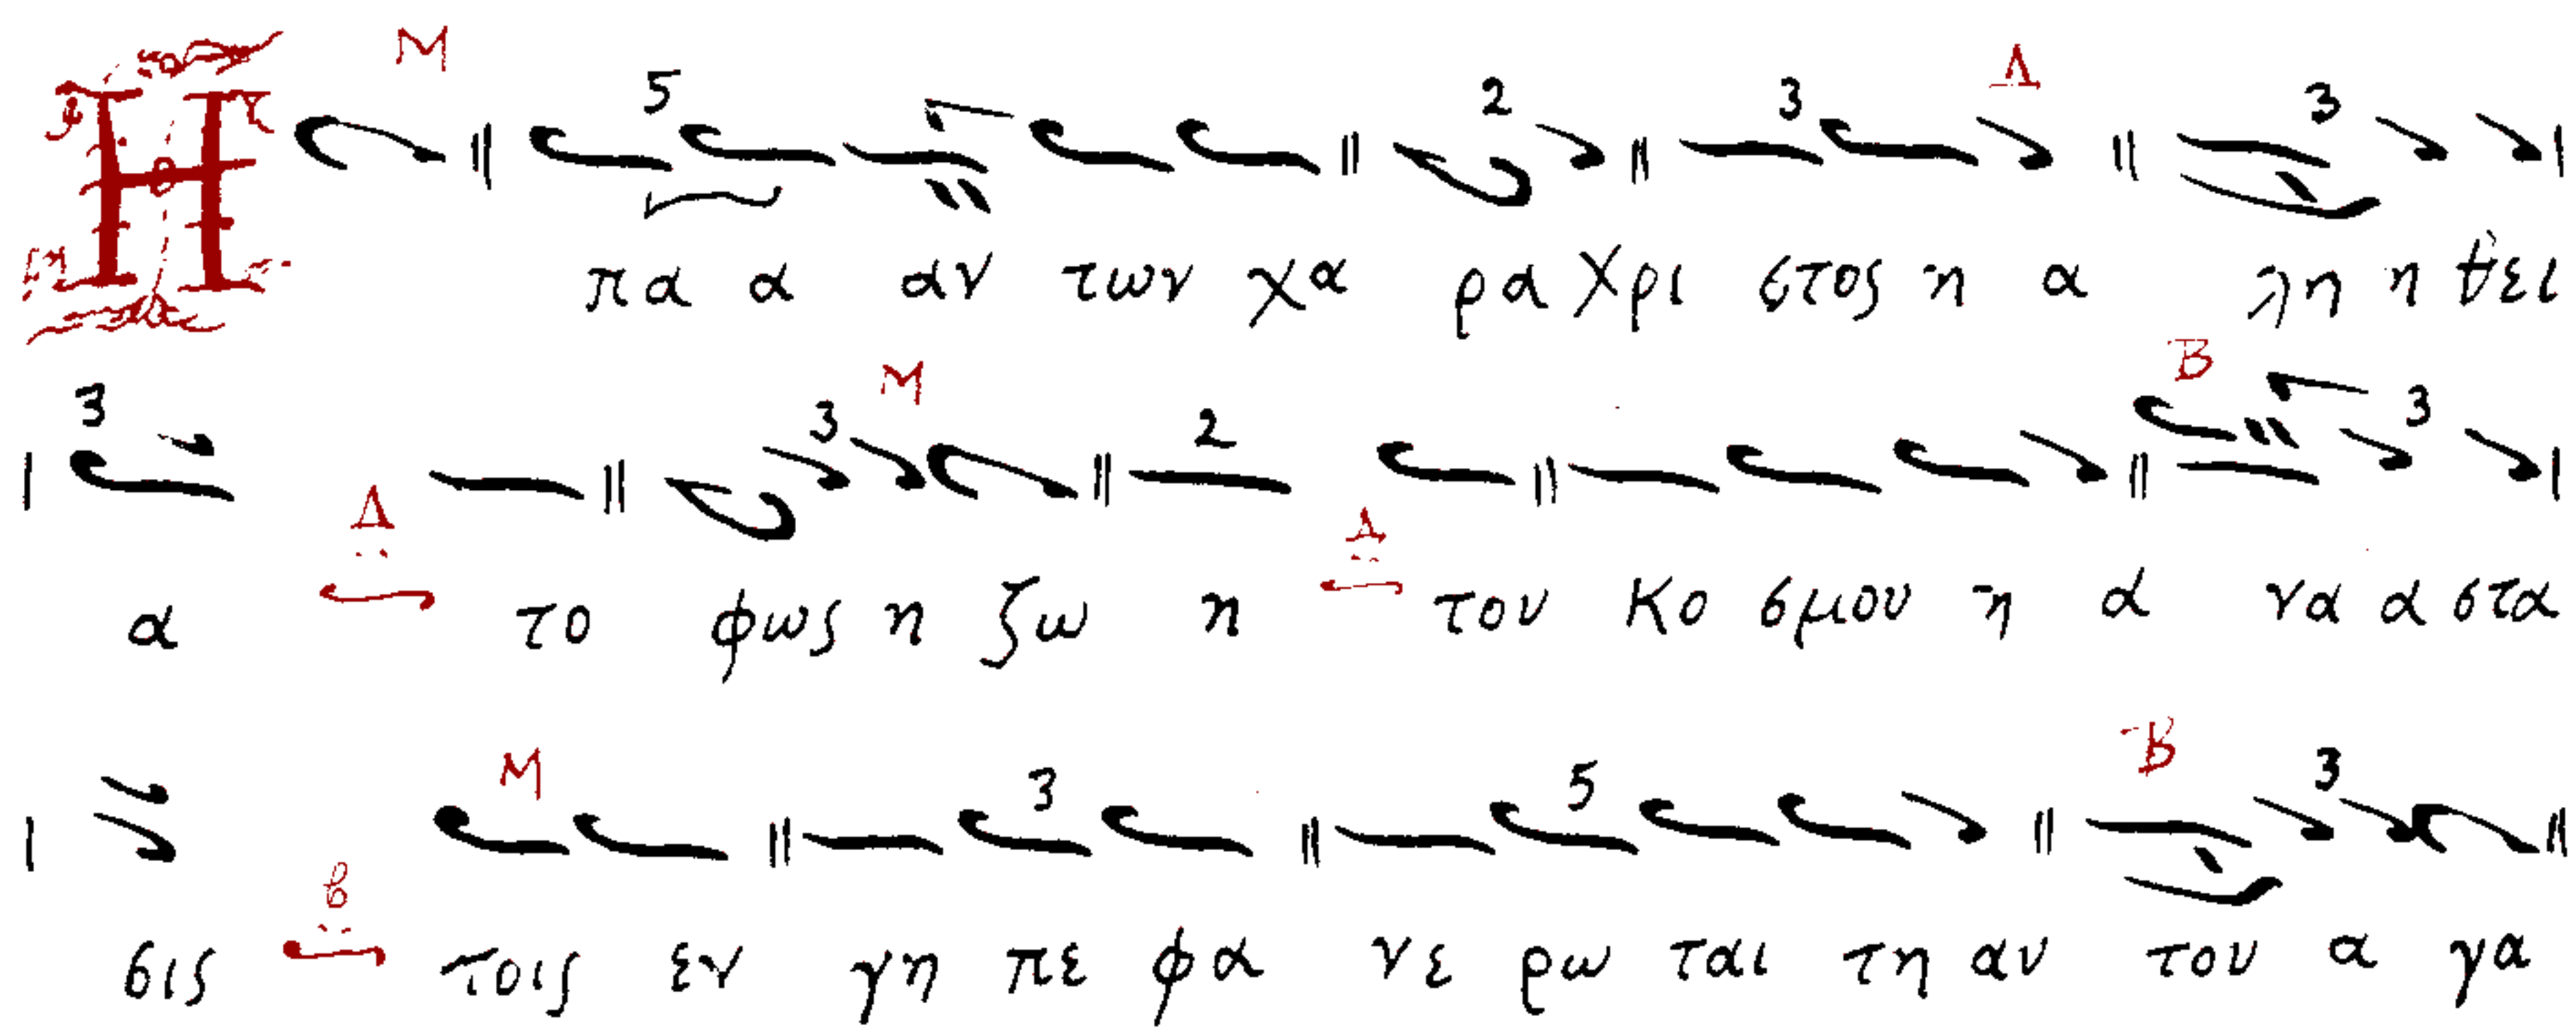 Μ 5 2 3 Δ 3
Η πα α αν των χα ρα Χρι στος η α λη η θει
3 3 Μ 2 Β 3
α Δ το φως η ζω η Δ του κο σμου η α να α στα
Μ 3 5 Β 3
σις β τοις εν γη πε φα νε ρω ται τη αυ του α γα